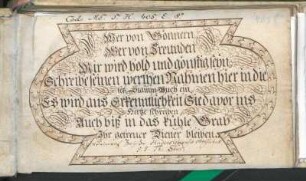 Cod. MS. 5. H.
Wer von Gönnern,
Wer von Freunden
Mir wird hold und günstig seyn,
Schreibe seinen werthen Nahmen hier in die-
ses Stamm-Buch ein.
Es wird aus Erkenntlichkeit Sie davor ins
Hertze schreiben
Auch biß in das kühle Grab
Ihr getreuer Diener bleiben.